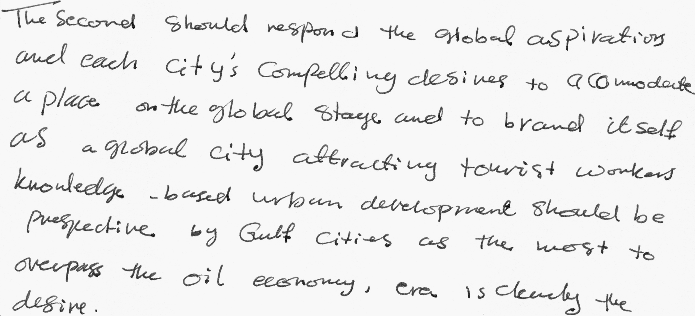 The Second should respond the global aspirations
and each city's Compelling desires to acomodate
a place on the global stage and to brand itself
as a global city attracting tourist workers
knowledge-based urban development should be
prespective by Gulf Cities as the most to
overpass the oil economy, era is clearly the
desire.